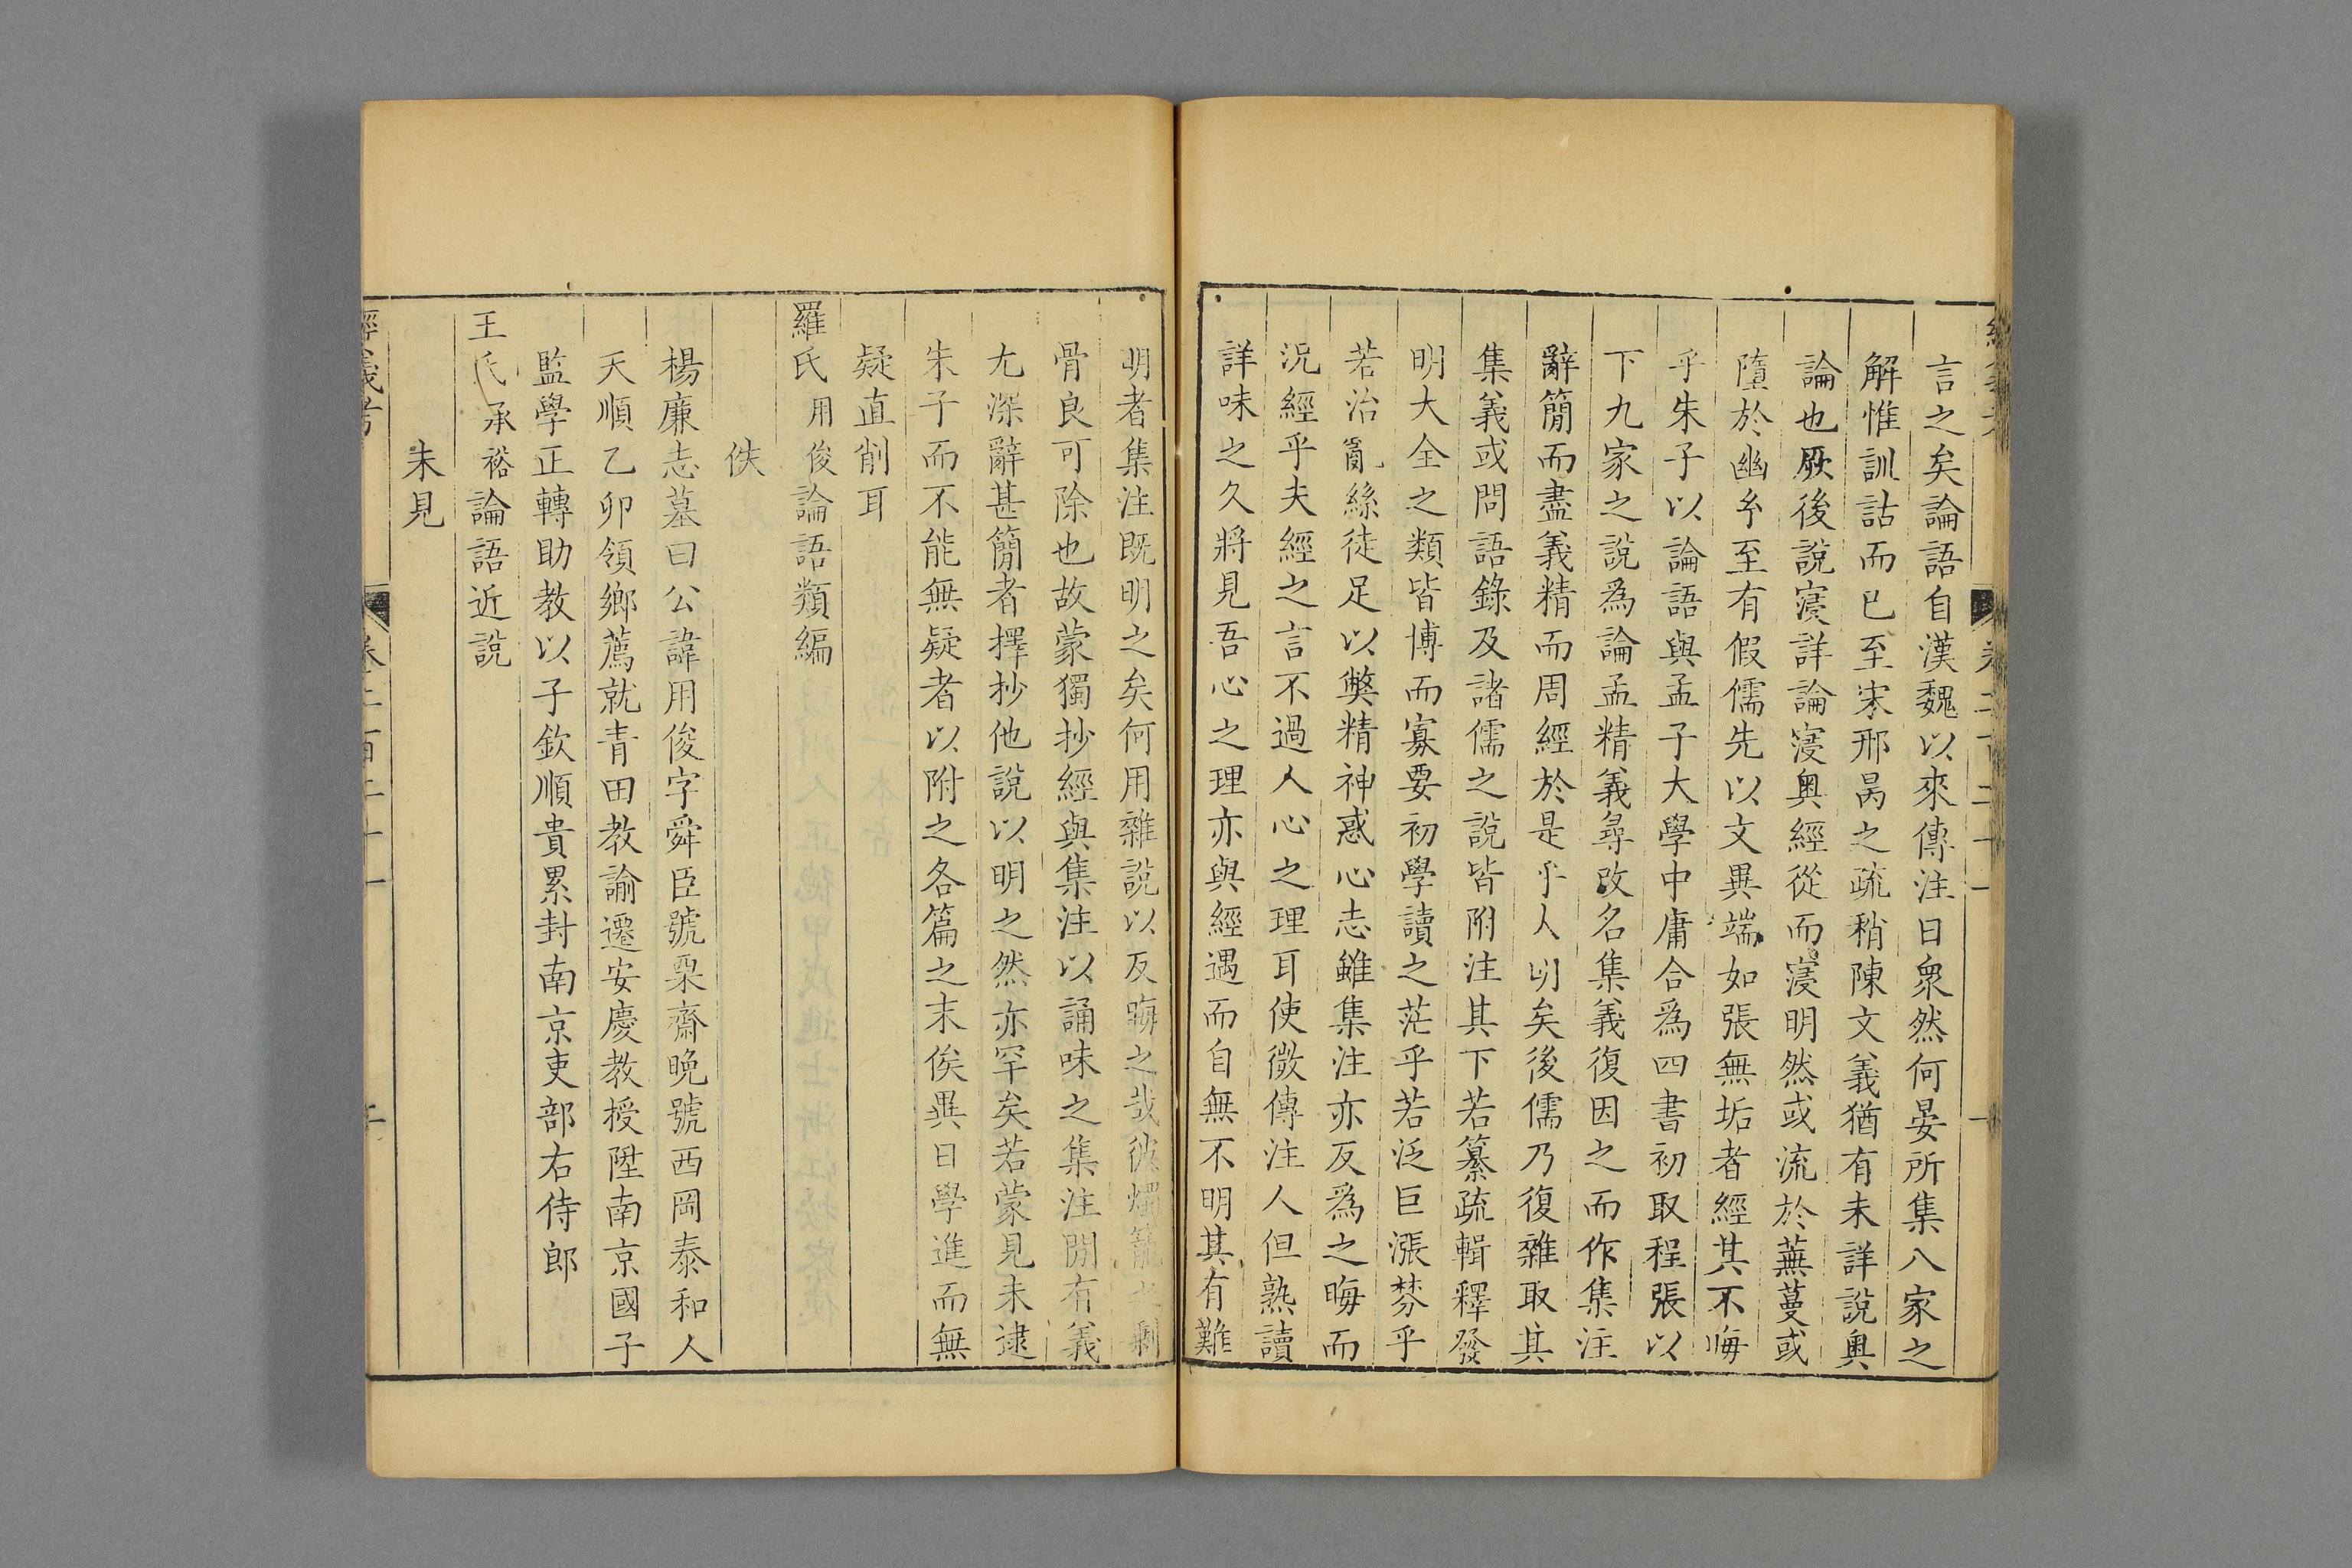 言之矣論語自漢魏以來傳注日衆然何晏所集八家之
解惟訓詁而巳至宋邢昺之疏稍陳文義猶有未詳說奥
論也厥後說寖詳論寖奥經從而寖明然或流於蕪蔓或
隨於幽𢆯至有假儒先以文異端如張無垢者經其不晦
乎朱子以論語與孟子大學中庸合爲四書初取程張以
下九家之說爲論孟精義尋改名集義復因之而作集注
辭簡而盡義精而周經於是乎人明矣後儒乃復雜取其
集義或問語錄及諸儒之說皆附注其下若纂疏輯釋發
明大全之類皆博而寡要初學讀之茫乎若泛巨漲棼乎
若治亂絲徒足以獘精神惑心志雖集注亦反爲之晦而
況經乎夫經之言不過人心之理耳使微傳注人但熟讀
詳味之久將見吾心之理亦與經遇而自無不明其有難
明者集注既明之矣何用雜說以反晦之哉彼燭籠之剩
骨良可除也故蒙獨抄經與集注以誦味之集注閒有義
尤深辭甚簡者擇抄他說以明之然亦罕矣若蒙見未逮
朱子而不能無疑者以附之各篇之末俟異日學進而無
疑直削耳
羅氏用俊論語類編
佚
楊廉志墓曰公諱用俊字舜臣號栗齋晚號西岡泰和人
天順乙卯領鄉薦就青田教諭遷安慶教授陞南京國子
監學正轉助教以子欽順貴累封南京吏部右侍郎
王氏承裕論語近說
未見
經義考 卷二百二十一